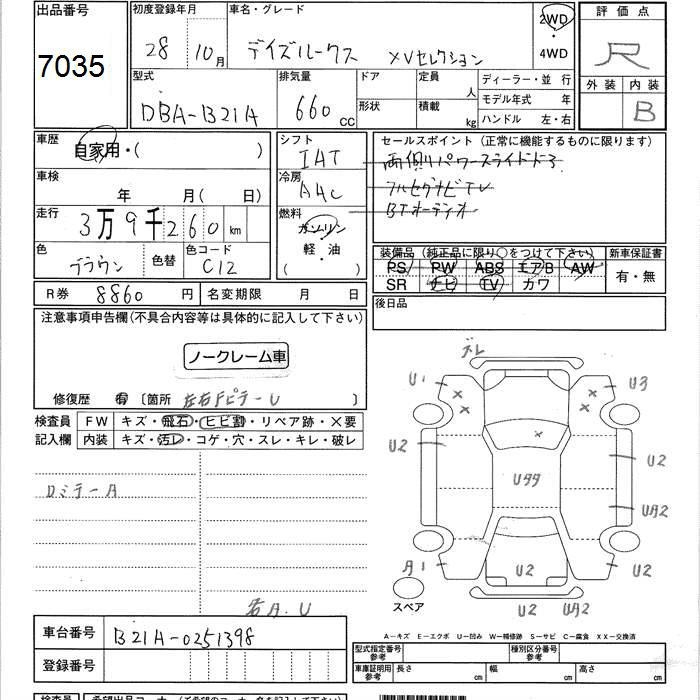 出品番号
7035
初度登録年月
28年10月
車名・グレード
デイズルークス XVセレクション
2WD
・
4WD
評価点
R
外装 内装
B
型式
DBA-B21A
排気量
660 CC
ドア
形状
定員 人
積載 kg
ディーラー・並行
モデル年式 年
ハンドル 左・右
車歴
自家用・( )
シフト
IAT
セールスポイント(正常に機能するものに限ります)
両側パワースライドドア
フルセグナビTV
BTオーディオ
車検
年 月( 日)
冷房
AAC
走行
3万9千260km
燃料
ガソリン
軽・油
( )
色
ブラウン
色替
色コード
C12
装備品(純正品に限り○をつけて下さい)
PS PW ABS エアB AW
SR ナビ TV カワ
新車保証書
有・無
R券 8860円
名変期限 月 日
後日品
注意事項申告欄(不具合内容等は具体的に記入して下さい)
ノークレーム車
修復歴 有 〔箇所 左右Fピラー U 〕
検査員
記入欄
FW キズ・飛石・ヒビ割・リペア跡・X要
内装 キズ・汚レ・コゲ・穴・スレ・キレ・破レ
DミラーA
右A.U
ズレ
U1
U3
U2
U2
Uタタ
UA2
A1
U2
U2
UA2
スペア
A-キズ E-エクボ U-凹み W-補修跡 S-サビ C-腐食 XX-交換済
車台番号
B21A-0251398
登録番号
型式指定番号
参考
種別区分番号
参考
車庫証明用
参考
長さ cm
幅 cm
高さ cm